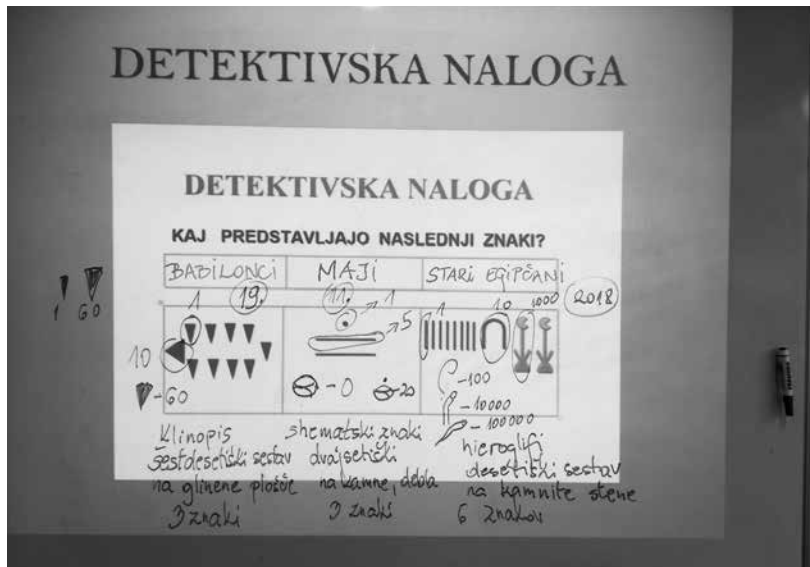 DETEKTIVSKA NALOGA
DETEKTIVSKA NALOGA
KAJ PREDSTAVLJAJO NASLEDNJI ZNAKI?
BABILONCI MAJI STARI EGIPČANI
1 19. 11. → 1 1 10 1000 2018
1 60
→ 5
10
-60
-0 -20
-100
-10000
-100000
Klinopis
šestdesetiški sestav
na glinene plošče
3 znaki
shematski znaki
dvajsetiški
na kamne, debla
3 znaki
hieroglifi
desetiški sestav
na kamnite stene
6 znakov